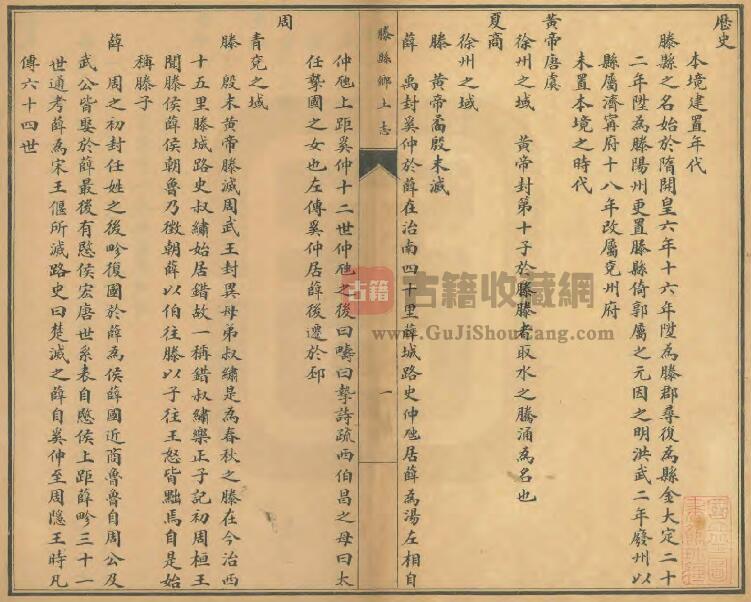 歷史
本境建置年代
滕縣之名始於隋開皇六年十六年陞為滕郡尋復為縣金大定二十
二年陞為滕陽州更置滕縣倚郭屬之元因之明洪武二年廢州以
縣屬濟甯府十八年改屬兗州府
未置本境之時代
黃帝唐虞
徐州之域　黃帝封第十子於滕滕者取水之騰涌為名也
夏商
徐州之域
滕　黃帝裔殷末滅
薛　禹封奚仲於薛在治南四十里薛城路史仲虺居薛為湯左相自
滕縣鄉土志
一
仲虺上距奚仲十二世仲虺之後曰疇曰摯詩疏西伯昌之母曰太
任摯國之女也左傳奚仲居薛後遷於邳
周
青兗之域
滕　殷末黃帝滕滅周武王封異母弟叔繡是為春秋之滕在今治西
十五里滕城路史叔繡始居錯故一稱錯叔繡樂正子記初周桓王
聞滕侯薛侯朝魯乃徵朝薛以伯往滕以子往王怒皆黜焉自是始
稱滕子
薛　周之初封任姓之後畛復國於薛為侯薛國近商魯魯自周公及
武公皆娶於薛最後有愍侯宏唐世系表自愍侯上距薛畛三十一
世通考薛為宋王偃所滅路史曰楚滅之薛自奚仲至周隱王時凡
傳六十四世
古籍
古籍收藏網
www.GuJiShouCang.com